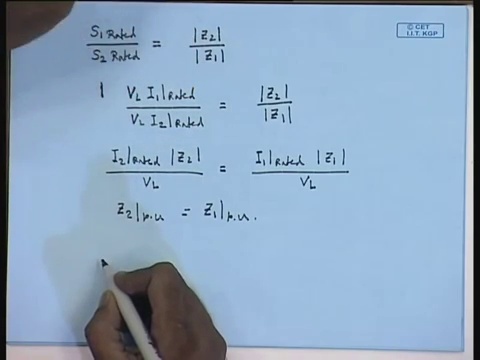 © CET
I.I.T. KGP
S₁ Rated / S₂ Rated = |Z₂| / |Z₁|
V_L I₁|Rated / V_L I₂|Rated = |Z₂| / |Z₁|
I₂|Rated |Z₂| / V_L = I₁|Rated |Z₁| / V_L
Z₂|p.u = Z₁|p.u.